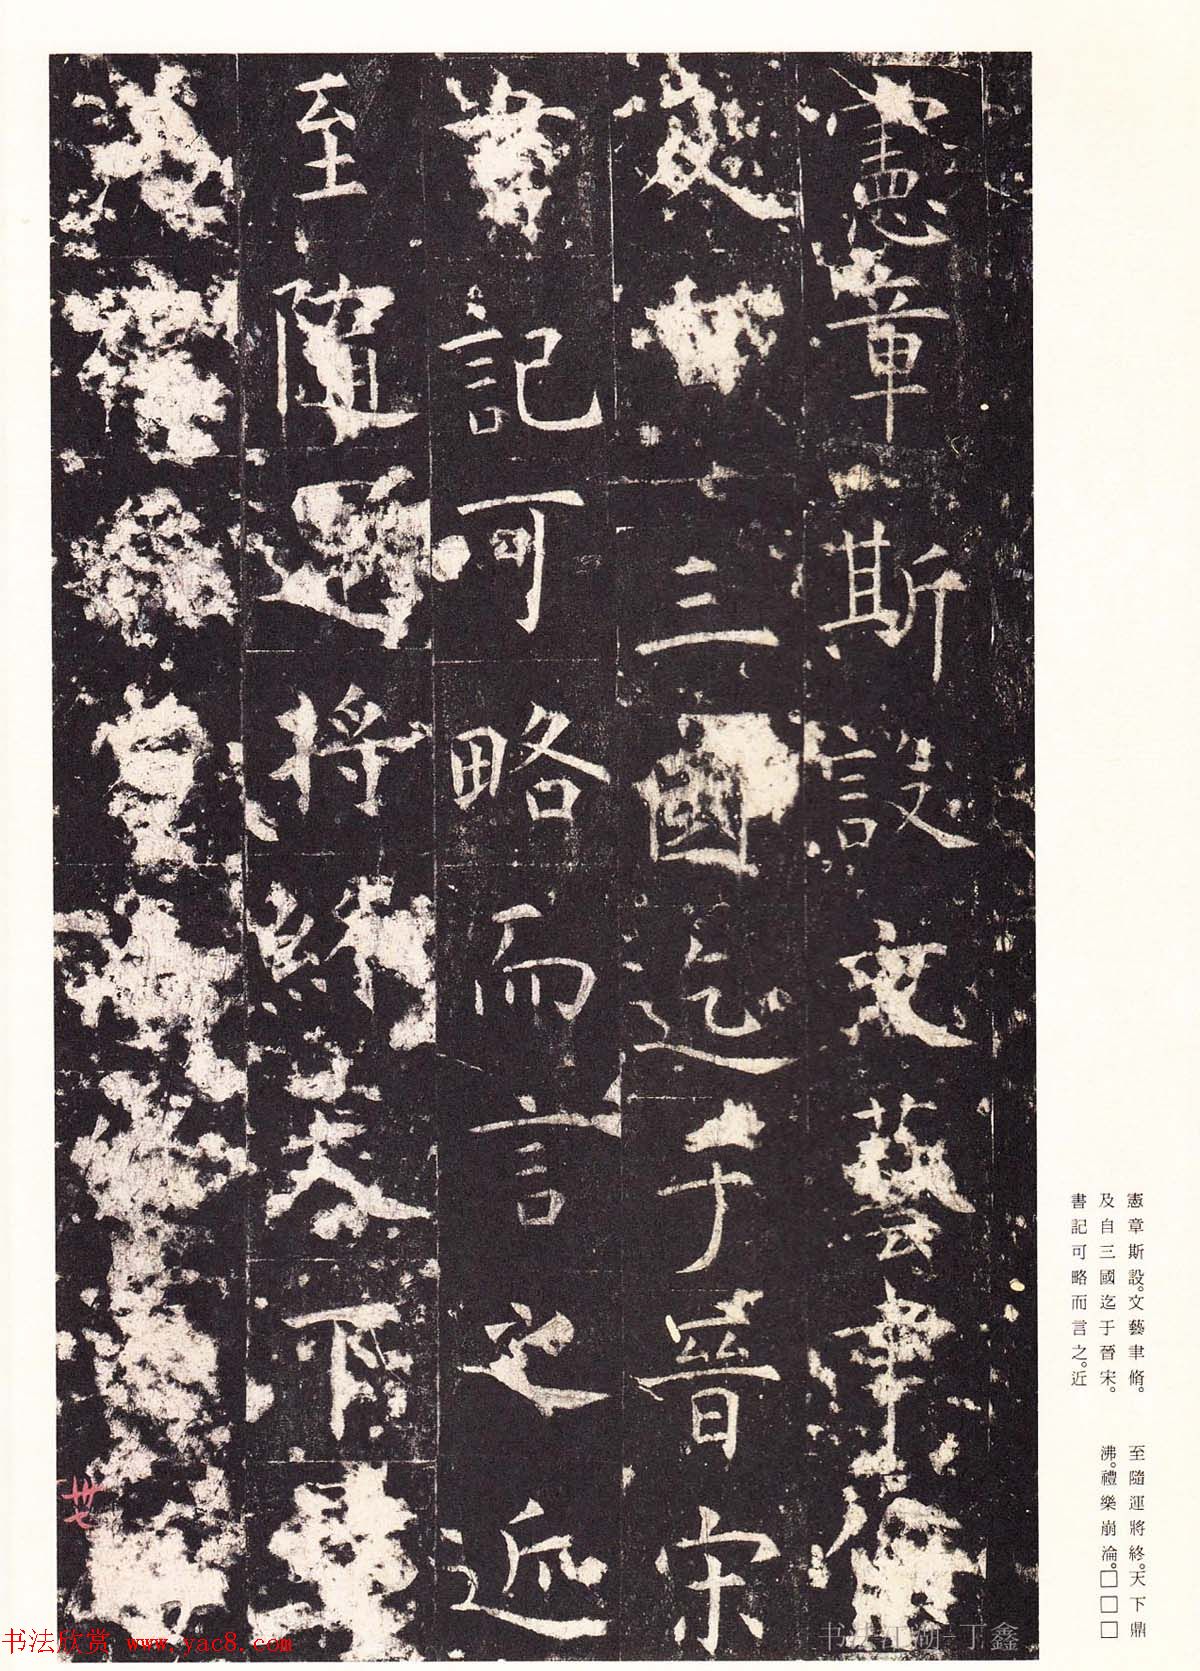 憲章斯設文藝聿脩
及自三國迄于晉宋
書記可略而言之近
至隨運將終天下鼎
憲章斯設。文藝聿脩。
及自三國迄于晉宋。
書記可略而言之。近
至隨運將終。天下鼎
沸。禮樂崩淪。□□□
卅七
书法欣赏 www.yac8.com
书法江湖-丁鑫